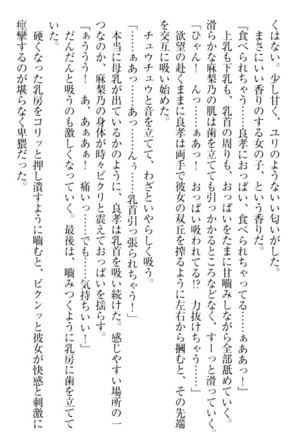 くはない。少し甘く、ユリのようないい匂いがした。
まさにいい香りのする女の子、という香りだ。
『食べられちゃう……良孝におっぱい、食べられちゃってる……ぁああっ！』
上乳も下乳も、乳首の周りも、おっぱいをたまに甘噛みしながら全部舐めていく。
滑らかな麻梨乃の肌は歯を立てても引っかかるところなどなく、すーっと滑っていく。
『ひゃん！ んっつ……おっぱい吸われてる!? 力抜けちゃう……』
欲望の赴くままに良孝は両手で彼女の双丘を搾るように左右から摑むと、その先端
を交互に吸い始めた。
チュウチュウと音を立てて、わざといやらしく吸う。
『……ぁあっ……あっ……んぅ……乳首引っ張られちゃう！』
本当に母乳が出ているかのように、良孝は乳首を吸い続けた。感じやすい場所の一
つなのか、麻梨乃の身体が時々ビクリと震えておっぱいを揺らす。
『ぁううう！ あ、あぁあぁ！ 痛いっ……でも……気持ちいい！』
だんだんと吸うのも激しくなっていく。最後は、嚙みつくように乳房に歯を立てて
硬くなった乳房をコリッと押し潰すように嚙むと、ビクンッと彼女が快感と刺激に
痙攣するのが堪らなく卑猥だった。